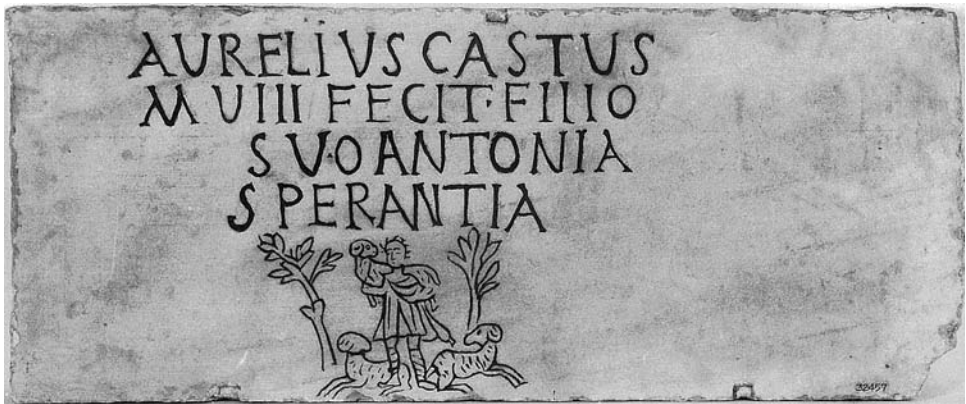 AURELIVS CASTUS
M UIIII FECIT·FILIO
SVO ANTONIA
SPERANTIA
32457